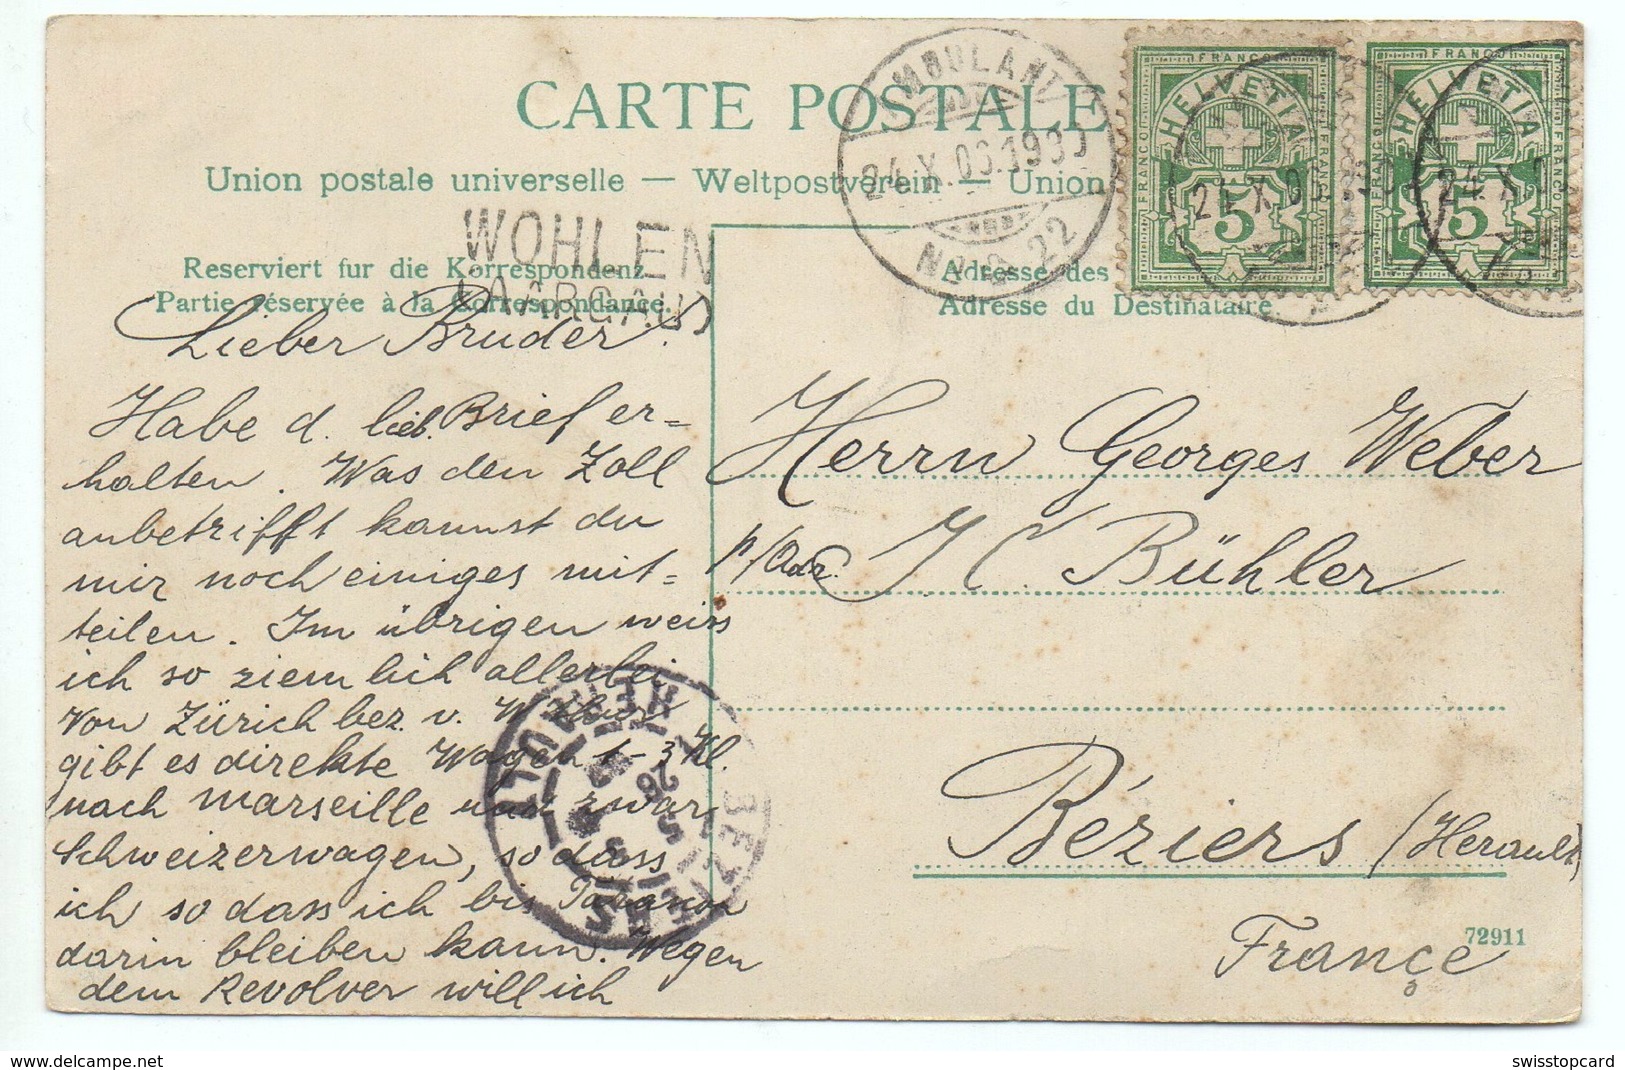 CARTE POSTALE
Union postale universelle — Weltpostverein — Union
AMBULANT
24.X.06.
No. 22
FRANCO
HELVETIA
5
FRANCO
HELVETIA
5
24 X
24 X
WOHLEN
(AARGAU)
Reserviert fur die Korrespondenz
Partie réservée à la Correspondance.
Adresse des
Adresse du Destinataire
Lieber Bruder!
Habe d. lieb. Brief er=
halten. Was den Zoll
anbetrifft kannst du
mir noch einiges mit=
teilen. Im übrigen weiss
ich so ziemlich allerlei
Von Zürich bez. v.
gibt es direkte Wagen 1-3 Kl.
nach Marseille und zwar
Schweizerwagen, so dass
ich so dass ich bis
darin bleiben kann. Wegen
dem Revolver will ich
Herrn Georges Weber
p/Adr. Bühler
Béziers (Herault)
France
72911
BEZIERS
HERAULT
delcampe.net
swisstopcard